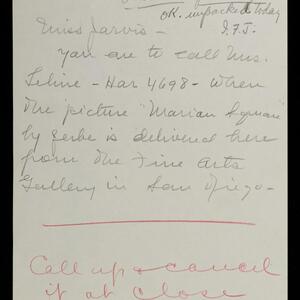 OK. unpacked today
I.F.J.
Miss Jarvis –
you are to call Mrs.
Seline – Har 4698 – when
the picture "Marian Syman"
by Zerbe is delivered here
from the Fine Arts
Gallery in San Diego –
Call up & cancel
if at close